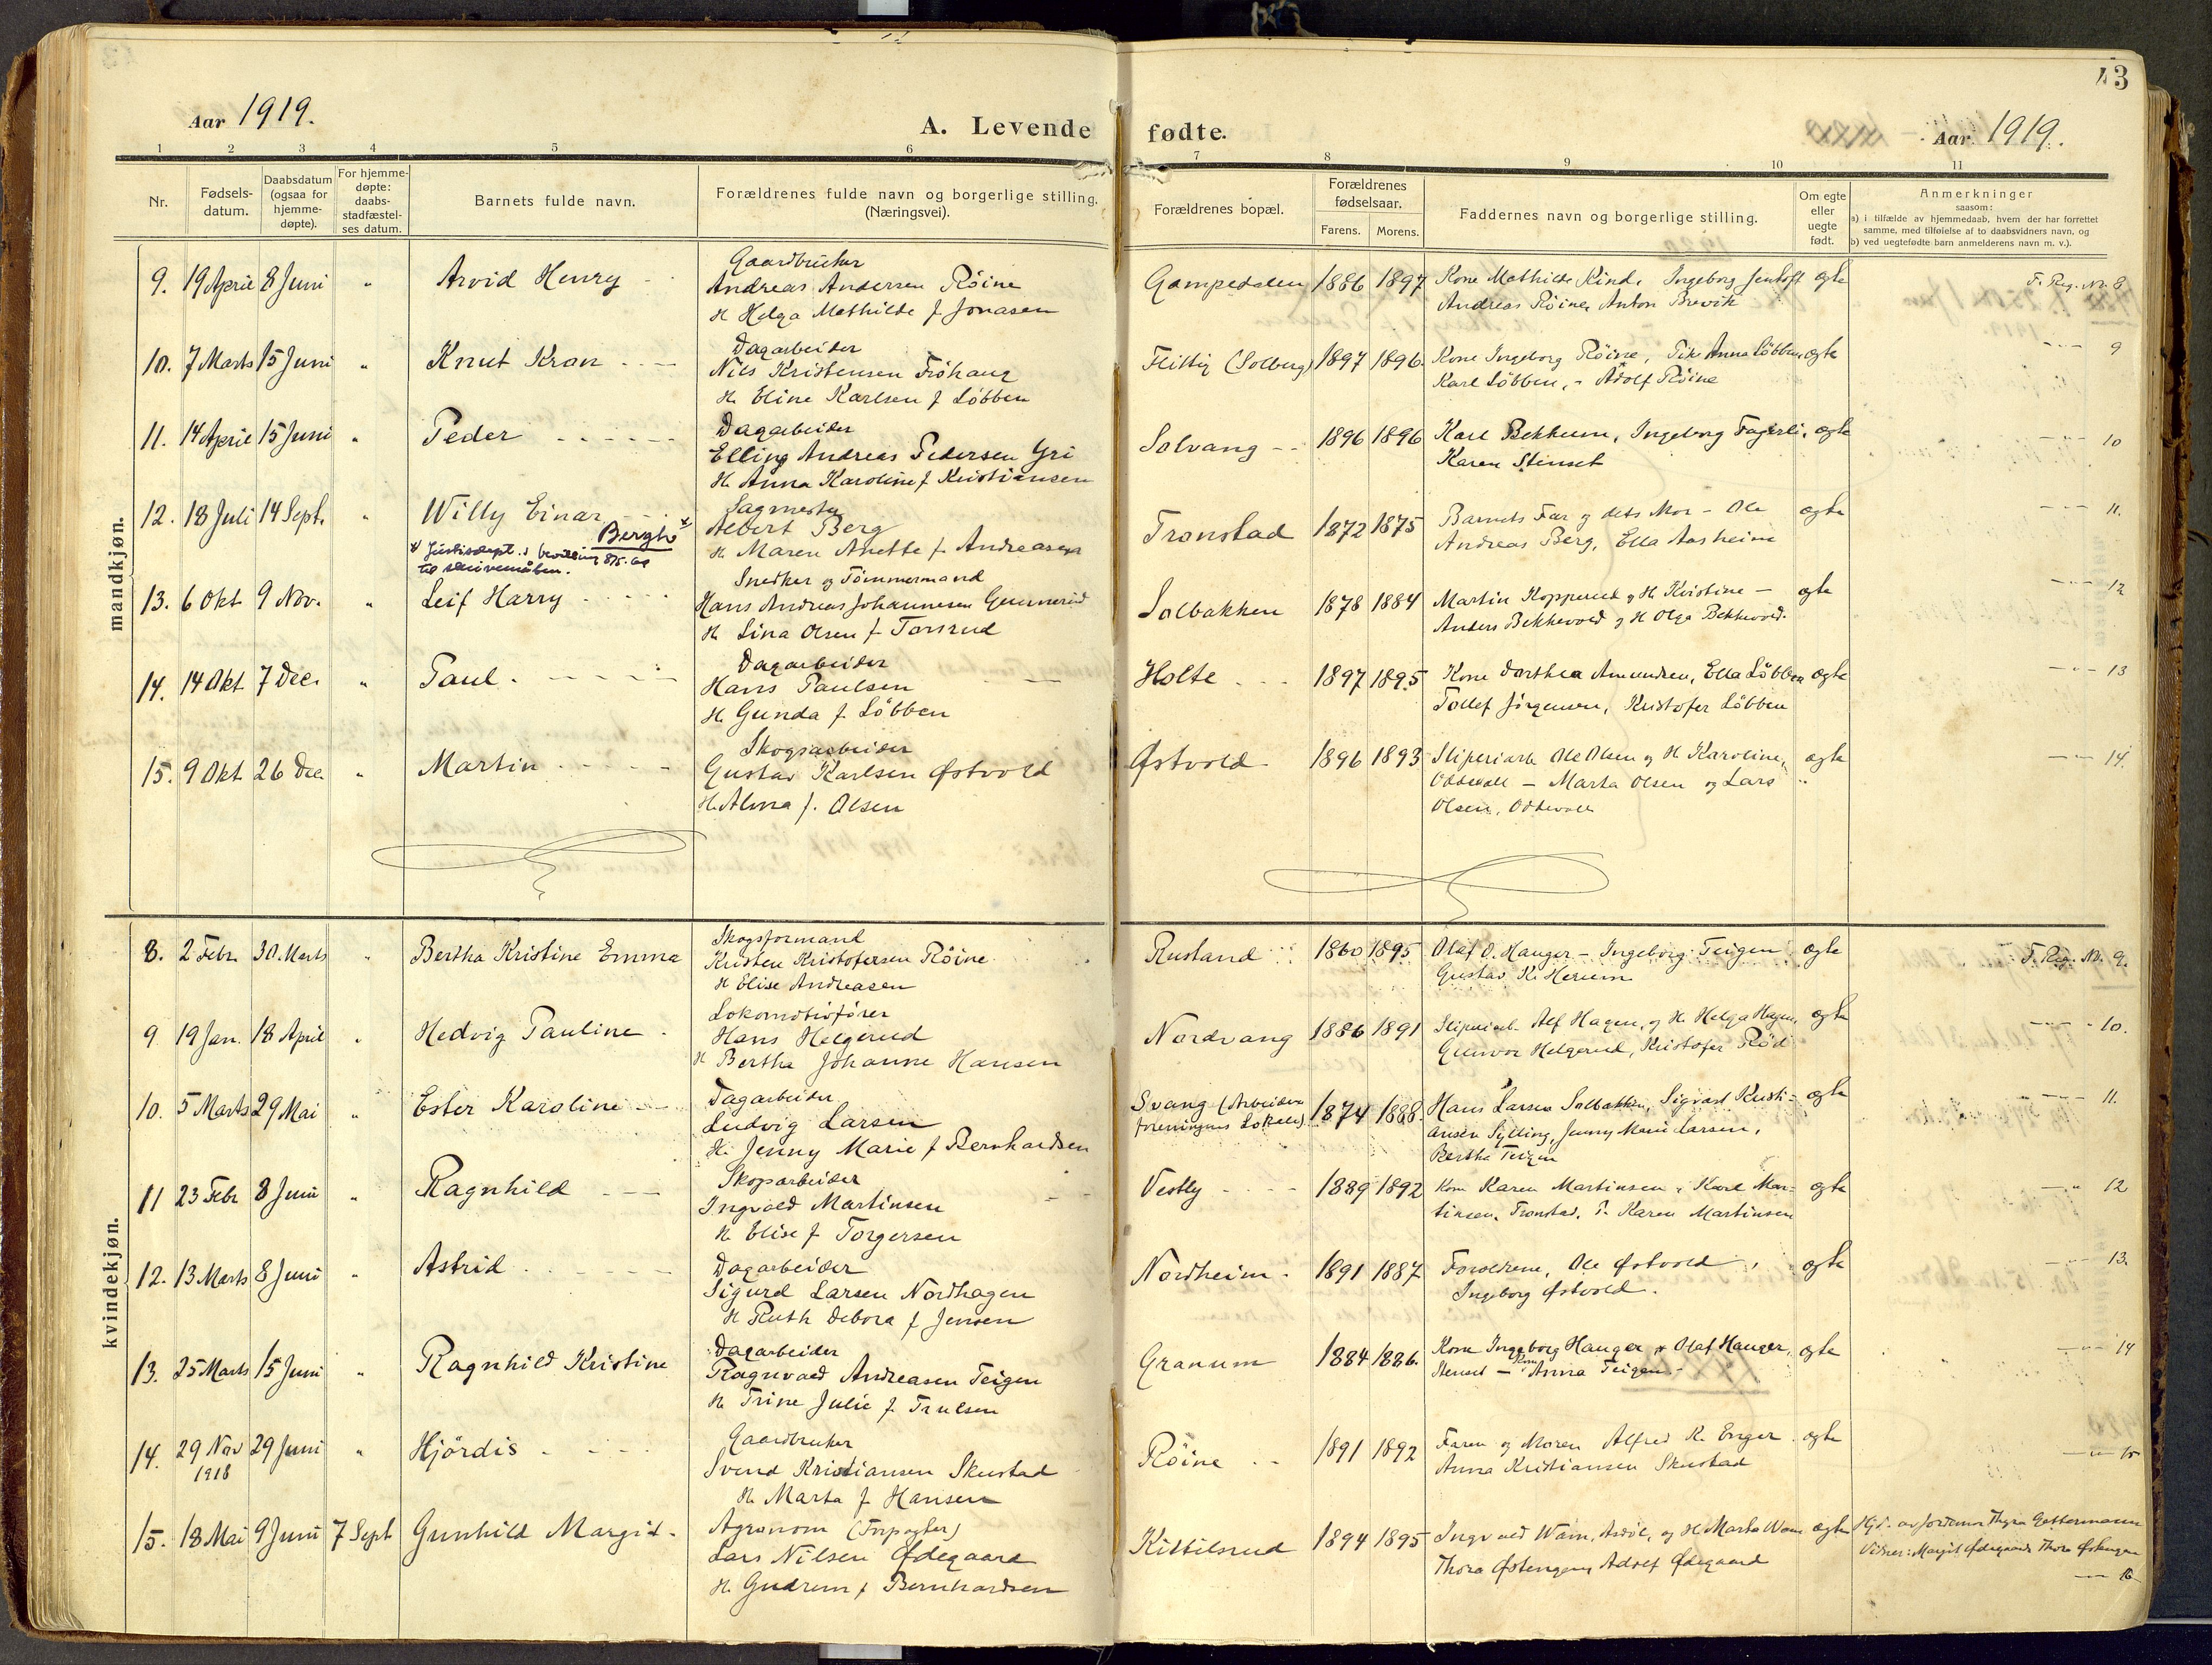 43
Aar 1919.
A. Levende fødte.
Aar 1919.
1 2 3 4 5 6 7 8 9 10 11
Nr.
Fødsels-
datum.
Daabsdatum
(ogsaa for
hjemme-
døpte).
For hjemme-
døpte:
daabs-
stadfæstel-
ses datum.
Barnets fulde navn.
Forældrenes fulde navn og borgerlige stilling.
(Næringsvei).
Forældrenes bopæl.
Forældrenes
fødselsaar.
Farens. Morens.
Faddernes navn og borgerlige stilling.
Om egte
eller
uegte
født.
Anmerkninger
saasom:
a) i tilfælde av hjemmedaab, hvem der har forrettet
samme, med tilføielse af to daabsvidners navn, og
b) ved uegtefødte barn anmelderens navn m. v.).
mandkjøn.
9. 19 April 8 Juni " Arvid Henry
Gaardbruker
Andreas Andersen Röine
H. Helga Mathilde f. Jonasen
Gampedalen 1886 1897
Kone Mathilde Kind, Ingeborg Jentoft
Andreas Röine, Anton Brevik
egte F. Reg. Nr. 8
10. 7 Marts 15 Juni " Knut Kran
Dagarbeider
Nils Kristensen Fröhaug
H. Eline Karlsen f Löbben
Flittig (Solberg) 1897 1896.
Kone Ingeborg Röine, Pike Anna Löbben
Karl Löbben, - Adolf Röine
egte — " — 9
11. 14 April 15 Juni " Peder
Dagarbeider
Elling Andreas Pedersen Gri
H. Anna Karoline f Kristiansen
Solvang 1896 1896
Karl Bekkum, Ingeborg Fagerli,
Karen Stenset
egte — " — 10
12. 18 Juli 14 Sept. " Willy Einar
Bergh *
* Justisdept.s bevilling
til skrivemåten.
Sagmester
Albert Berg
H. Maren Anette f. Andreasen
Tronstad 1872 1875
Barnets Far og dets Mor - Ole
Andreas Berg, Ella Aasheim
egte — " — 11.
13. 6 Okt 9 Nov. " Leif Harry
Snedker og Tömmermand
Hans Andreas Johannesen Gunnerud
H. Lina Olsen f Torsrud
Solbakken 1878 1884
Martin Kopperud og H. Kristine —
Anders Bekkevold og H Olga Bekkevold.
egte — " — 12
14. 14 Okt 7 Dec. " Paul
Dagarbeider
Hans Paulsen
H. Gunda f. Löbben
Holte 1897 1895
Kone Dorthea Amundsen, Ella Löbben
Tollef Jörgensen, Kristofer Löbben
egte — " — 13
15. 9 Okt 26 Dec " Martin
Skogsarbeider
Gustav Karlsen Østvold
H. Alma f. Olsen
Østvold 1896 1893
Sliperiarb Ole Olsen og H Karoline,
Oddevall — Marta Olsen og Lars
Olsen, Oddevall
egte — " — 14.
kvindekjøn.
8. 2 Febr. 30. Marts " Bertha Kristine Emma
Skogsformand
Kristen Kristofersen Röine
H Elise Andreasen
Rustand 1860 1895
Olaf O. Hauger — Ingeborg Teigen
Gustav K. Herum
egte F. Reg. Nr. 9.
9 19 Jan. 18 April " Hedvig Pauline
Lokomotivförer
Hans Helgerud
H Bertha Johanne Hansen
Nordvang 1886 1891
Sliperiarb. Alf Hagen, og H. Helga Hagen,
Gunvor Helgerud, Kristofer Röd
egte — " — 10.
10. 5 Marts 29 Mai " Ester Karoline
Dagarbeider
Ludvig Larsen
H. Jenny Marie f Bernhardsen
Svang (Arbeider
foreningens Lokale) 1874 1888.
Hans Larsen Solbakken, Sigvart Kristi-
ansen Sylling, Jenny Marie Larsen,
Bertha Teigen
egte — " — 11.
11 23 Febr 8 Juni " Ragnhild
Skogsarbeider
Ingvald Martinsen
H Elise f Torgersen
Vestby 1889 1892
Kone Karen Martinsen, Karl Mar-
tinsen, Tronstad, P. Karen Martinsen
egte — " — 12
12. 13 Marts 8 Juni " Astrid
Dagarbeider
Sigurd Larsen Nordhagen
H Ruth Debora f Jensen
Nordheim 1891 1887
Forældrene, Ole Østvold,
Ingeborg Østvold.
egte — " — 13.
13. 25 Marts 15 Juni " Ragnhild Kristine
Dagarbeider
Ragnvald Andreasen Teigen
H Trine Julie f. Trulsen
Granum 1884 1886.
Kone Ingeborg Hauger & Olaf Hauger,
Stenset — Kone Anna Teigen
egte — " — 14
14. 29 Nov 1918 29 Juni " Hjördis
Gaardbruker
Svend Kristiansen Skustad
H. Marta f Hansen
Röine 1891 1892
Faren og Moren Alfred K. Enger
Anna Kristiansen Skustad
egte — " — 15
15. 18 Mai 9 Juni 7 Sept Gunhild Margit
Agronom (Forpagter)
Lars Nilsen Ødegaard
H. Gudrun f Bernhardsen
Kittilsrud 1894 1895
Ingvald Wam, Asdöl, og H Marta Wam
Thora Østengen, Adolf Ødegaard
egte
Hjd. av Jordmor Thyra Gettermann
Vidner: Margit Ødegaard, Thora Østengen
— 16